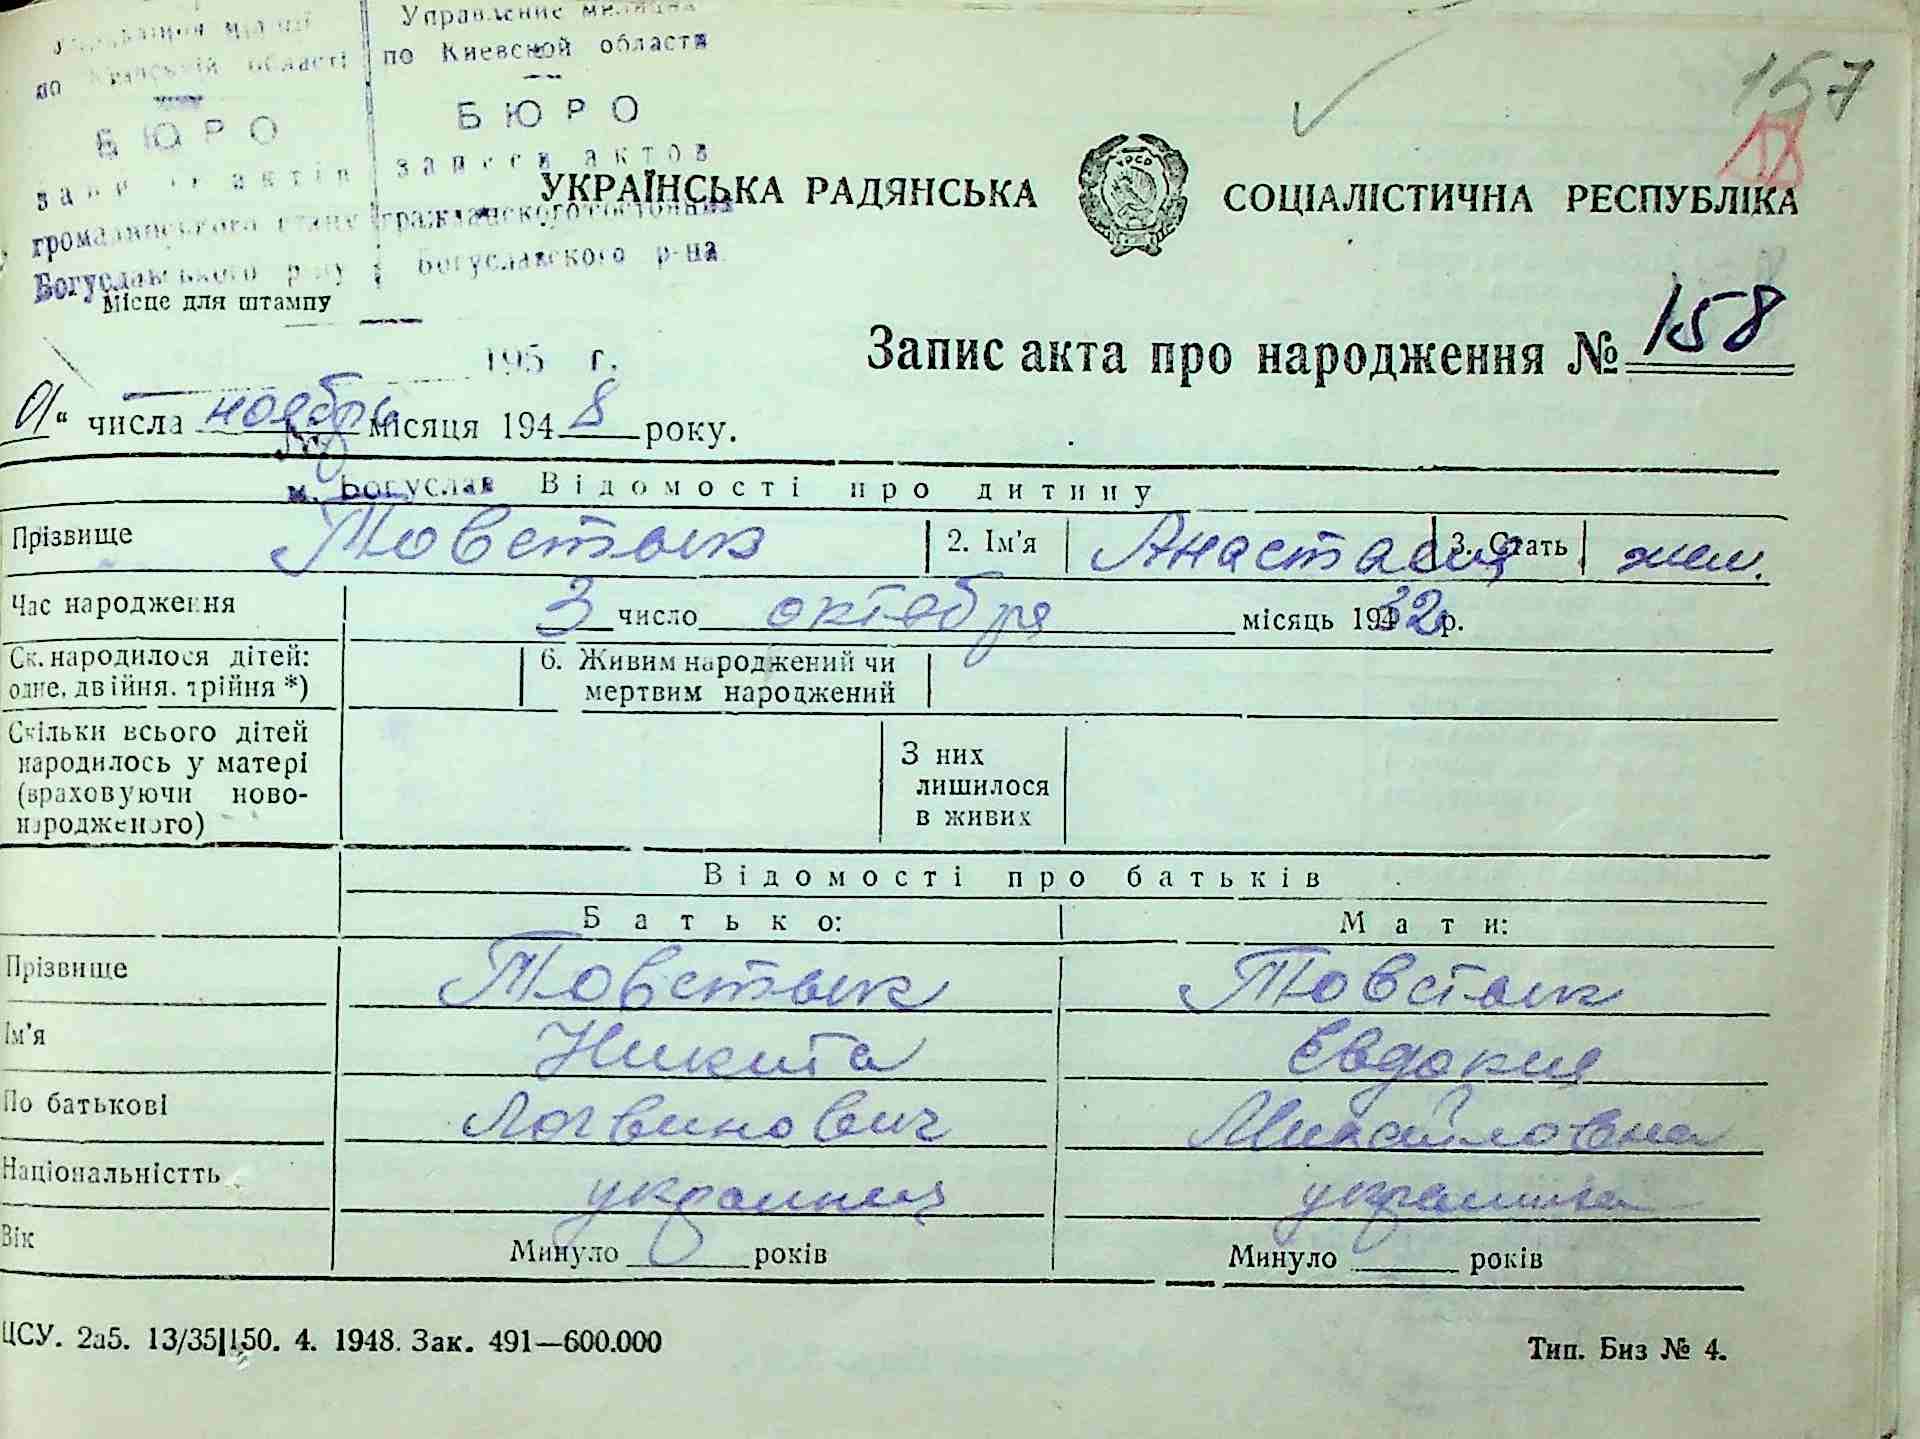 Управление милиции
по Київській області по Киевской области
БЮРО БЮРО
записи актів записи актов
громадянського стану гражданского состояния
Богуславського р-ну Богуславского р-на
Місце для штампу
157
18
УКРАЇНСЬКА РАДЯНСЬКА СОЦІАЛІСТИЧНА РЕСПУБЛІКА
УРСР
195 г.
Запис акта про народження № 158
01" числа ноября місяця 1948 року.
№
м. Богуслав
Відомості про дитину
Прізвище Товстык 2. Ім'я Анастасия 3. Стать жен.
Час народження 3 число октября місяць 1932 р.
Ск. народилося дітей: одне, двійня, трійня *)
6. Живим народжений чи мертвим народжений
Скільки всього дітей
народилось у матері
(враховуючи ново-
народженого)
З них
лишилося
в живих
Відомості про батьків
Батько: Мати:
Прізвище Товстык Товстык
Ім'я Никита Евдокия
По батькові Логвинович Михайловна
Національністть украинец украинка
Вік Минуло років Минуло років
ЦСУ. 2а5. 13/35|150. 4. 1948. Зак. 491—600.000 Тип. Биз № 4.